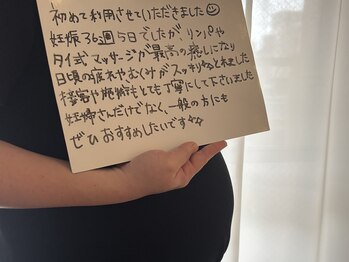 初めて利用させていただきました☺
妊娠36週5日でしたが、リンパや
タイ式マッサージが最高の癒しになり
日頃の疲れやむくみがスッキリとれました
接客や施術もとても丁寧にして下さいました
妊婦さんだけでなく、一般の方にも
ぜひおすすめしたいです☆☆